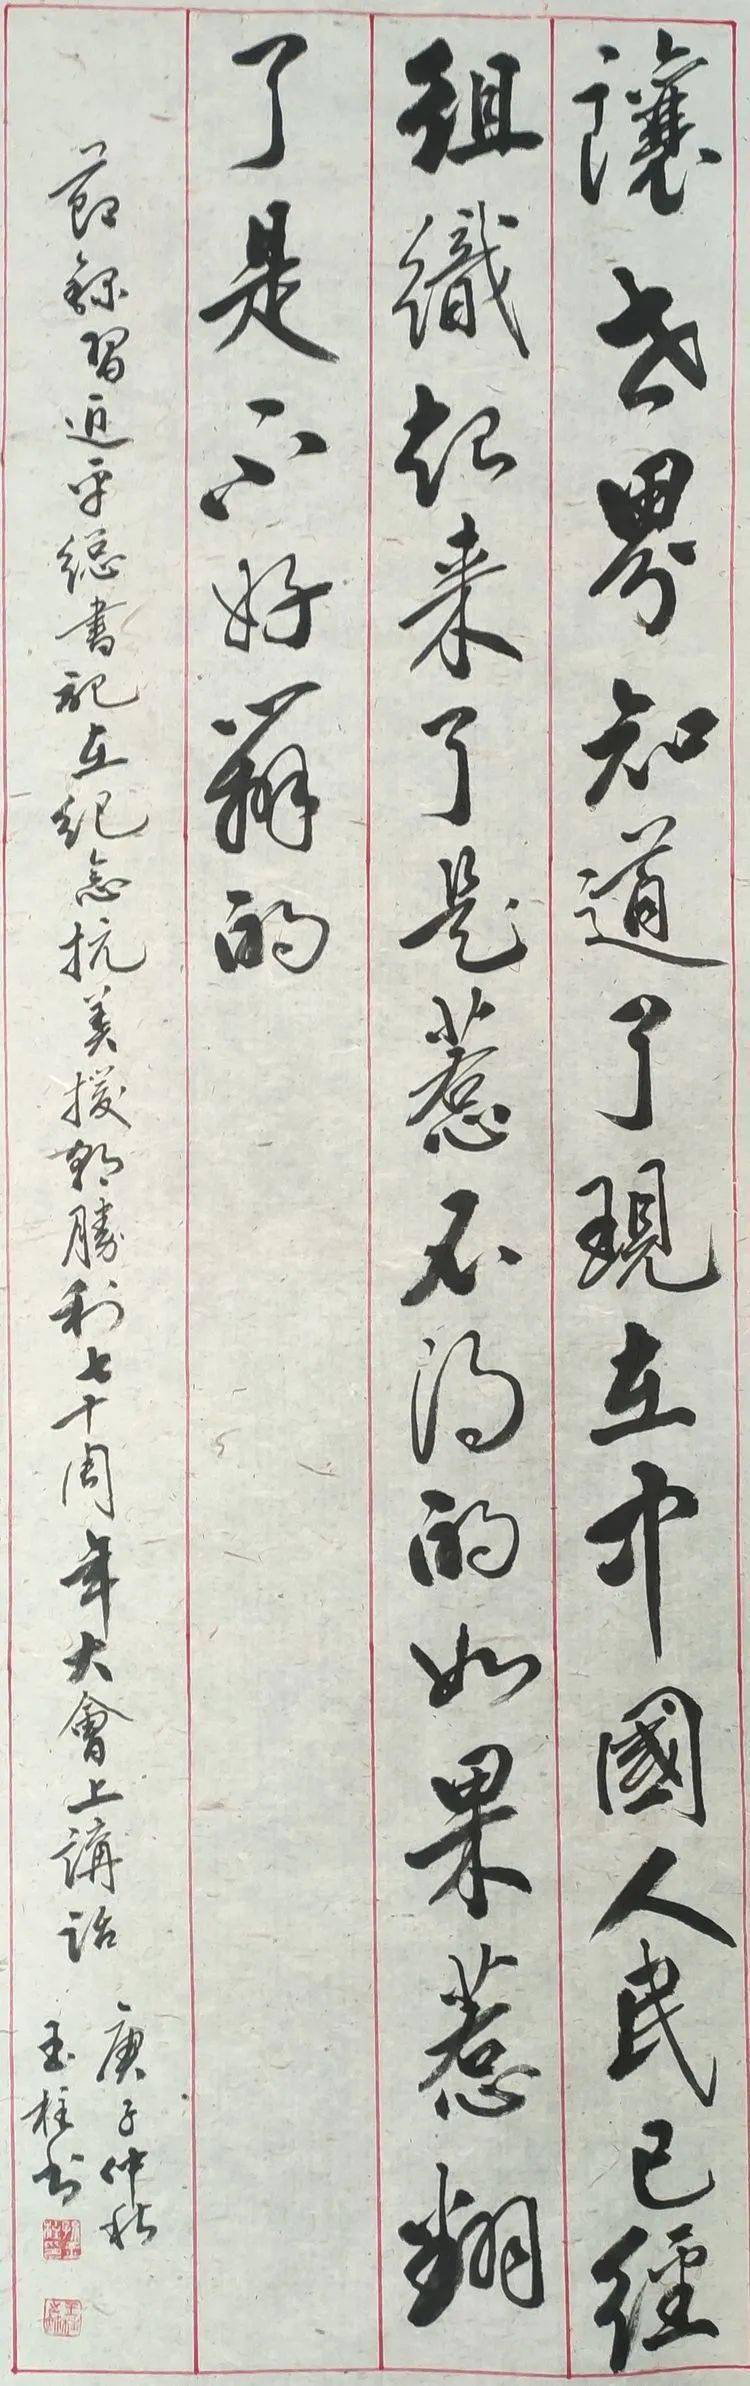 讓世界知道了現在中國人民已經
組織起来了是惹不得的如果惹翻
了是不好辦的
節録習近平總書記在纪念抗美援朝勝利七十周年大會上講話
庚子仲秋
玉柱书